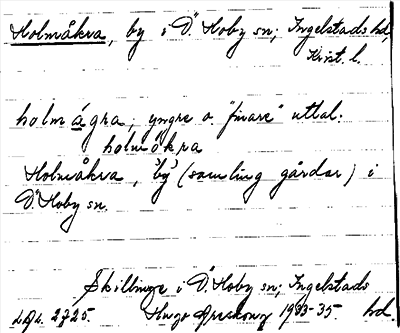 Holmåkra, by i Ö. Hoby sn; Ingelstads hd,
Krist. l.
holmágra; yngre o "finare" uttal:
holmåkra
Holmåkra, 'by' (samling gårdar) i
Ö. Hoby sn.
Skillinge i Ö. Hoby sn; Ingelstads
hd.
2725. Hugo Areskoug 1933-35.